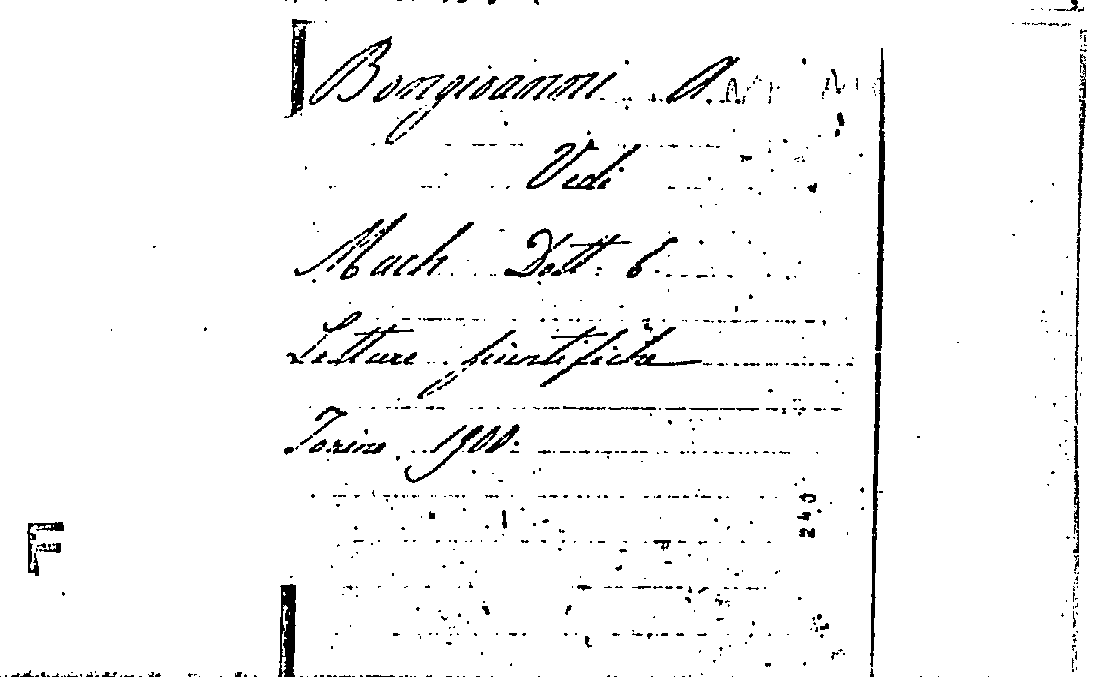 Bongiovanni A.
Vedi
Mach Dott. E.
Letture scientifiche
Torino 1900.
240
F